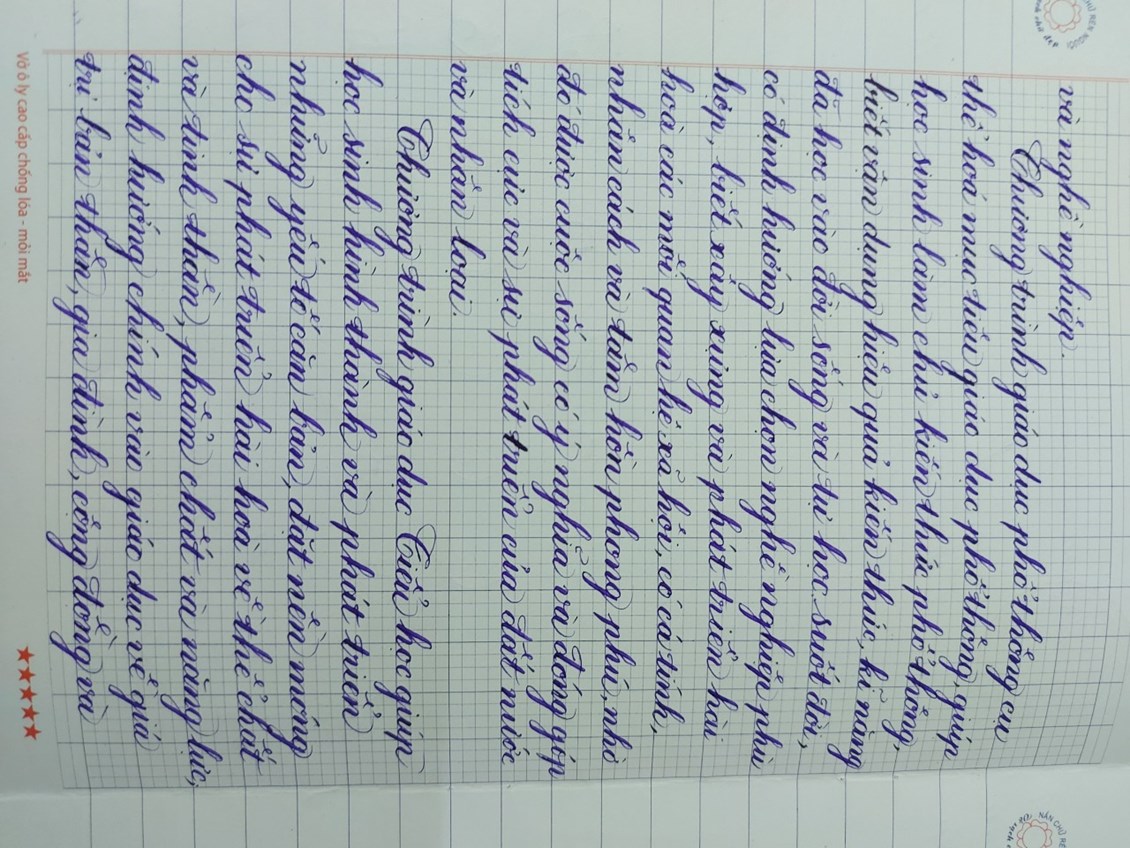 và nghề nghiệp.
Chương trình giáo dục phổ thông cụ
thể hoá mục tiêu giáo dục phổ thông, giúp
học sinh làm chủ kiến thức phổ thông,
biết vận dụng hiệu quả kiến thức, kĩ năng
đã học vào đời sống và tự học suốt đời,
có định hướng lựa chọn nghề nghiệp phù
hợp, biết xây dựng và phát triển hài
hoà các mối quan hệ xã hội, có cá tính,
nhân cách và tâm hồn phong phú, nhờ
đó được cuộc sống có ý nghĩa và đóng góp
tích cực và sự phát triển của đất nước
và nhân loại.
Chương trình giáo dục Tiểu học giúp
học sinh hình thành và phát triển
những yếu tố căn bản, đặt nền móng
cho sự phát triển hài hoà về thể chất
và tinh thần, phẩm chất và năng lực;
định hướng chính vào giáo dục về giá
trị bản thân, gia đình, cộng đồng và
Vở ô ly cao cấp chống lóa - mỏi mắt
NẮN CHỮ RÈN NGƯỜI